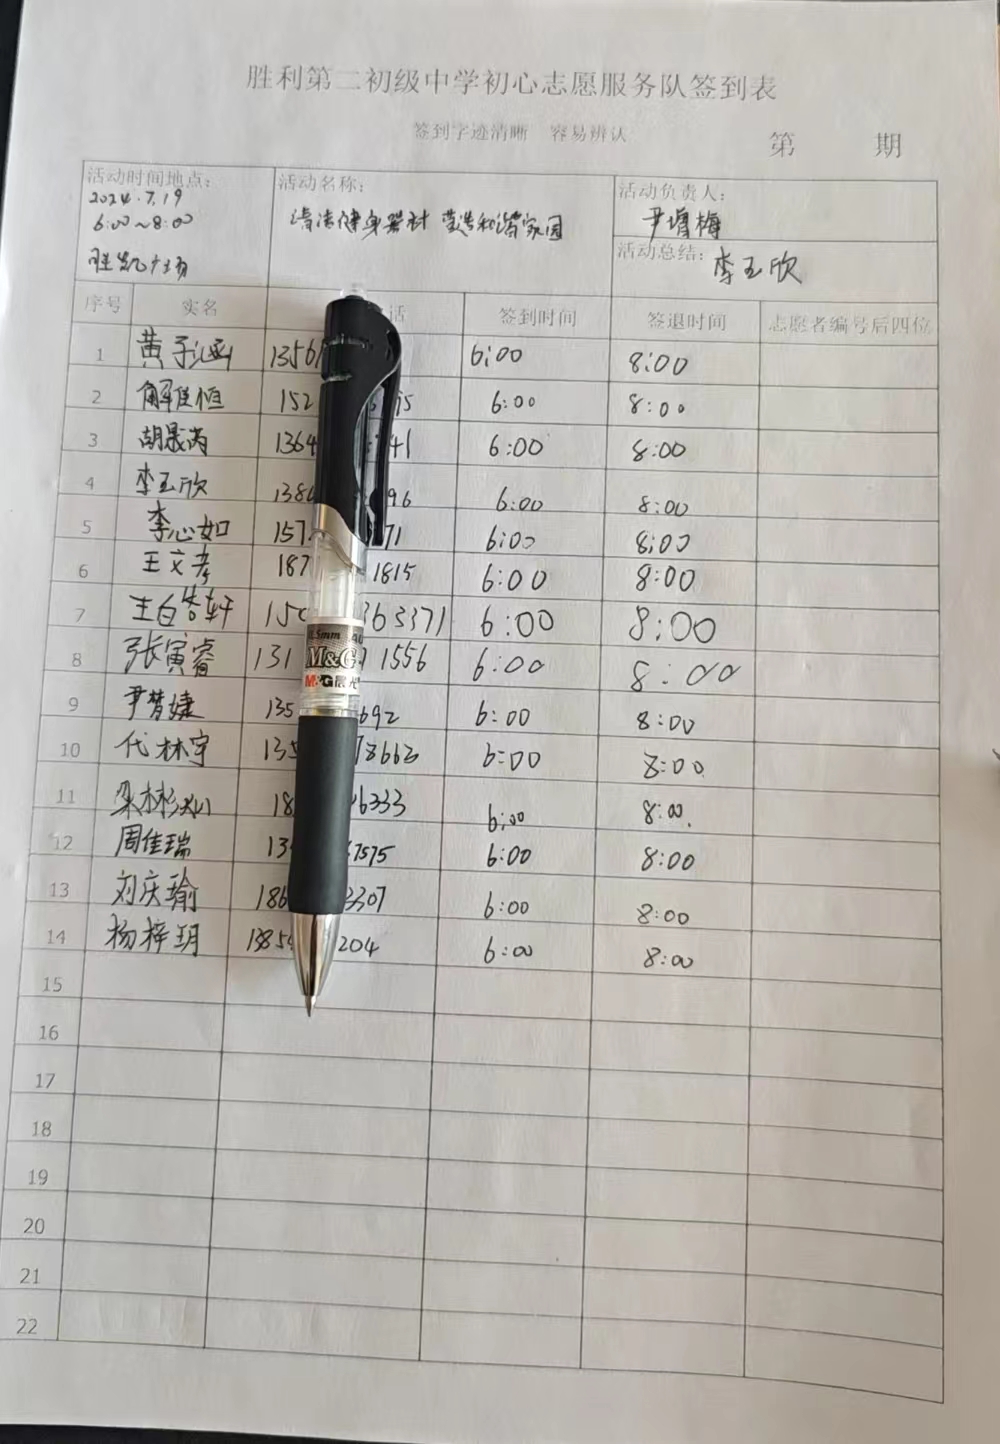 胜利第二初级中学初心志愿服务队签到表
签到字迹清晰 容易辨认
第 期
活动时间地点：
2024.7.19
6:00~8:00
胜凯广场
活动名称：
清洁健身器材 营造和谐家园
活动负责人：
尹增梅
活动总结：李玉欣
序号 实名 话 签到时间 签退时间 志愿者编号后四位
1 黄子涵 1356 6:00 8:00
2 解佳恒 152 95 6:00 8:00
3 胡晟芮 1364 41 6:00 8:00
4 李玉欣 138 96 6:00 8:00
5 李心如 157 71 6:00 8:00
6 王文彦 187 1815 6:00 8:00
7 150 363371 6:00 8:00
8 张寅睿 131 1556 6:00 8:00
9 尹梦婕 135 692 6:00 8:00
10 代林宇 135 78663 6:00 8:00
11 18 6333 6:00 8:00.
12 周佳瑞 13 7575 6:00 8:00
13 刘庆瑜 186 3307 6:00 8:00
14 杨梓玥 13854 204 6:00 8:00
15
16
17
18
19
20
21
22
0.5mm
M&G
M&G晨光